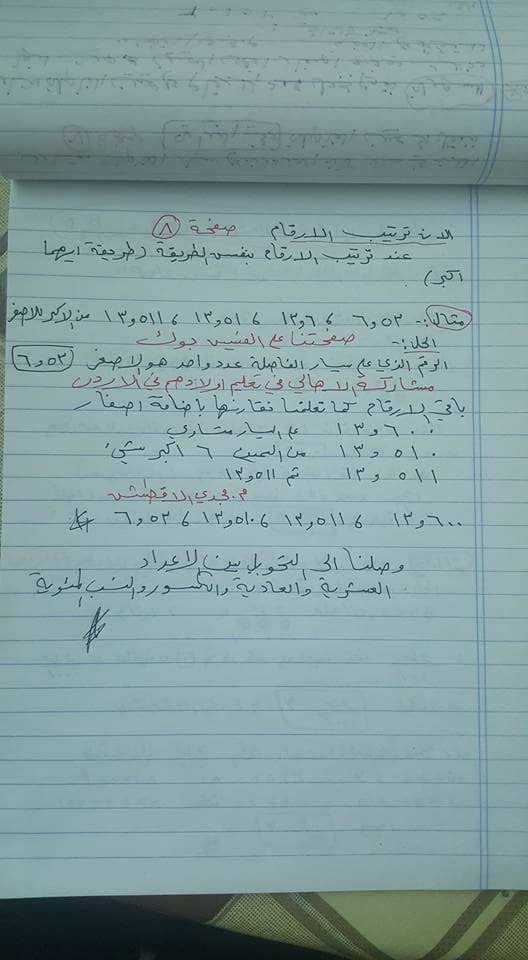 الان ترتيب الارقام صفحة ٨
عند ترتيب الارقام بنفس الطريقة (طريقة ايهما
اكبر)
مثال:- ٥٣و٦ ، ٦و١٣ ، ٥١و١٣ ، ٥١١و١٣ من الاكبر للاصغر
الحل:- صفحتنا على الفيس بوك
الرقم الذي على يسار الفاصلة عدد واحد هو الاصغر ٥٣و٦
مشاركة الاهالي في تعليم اولادهم في الاردن
باقي الارقام كما تعلمنا نقارنها باضافة اصفار
٦٠٠و١٣ على اليسار متساوي
٥١٠و١٣ من اليمين ٦ اكبر شيء
٥١١و١٣ ثم ٥١١و١٣
م. مجدي الاقطش
٦٠٠و١٣ ، ٥١١و١٣ ، ٥١٠و١٣ ، ٥٣و٦
وصلنا الى التحويل بين الاعداد
العشرية والعادية والكسور والنسب المئوية